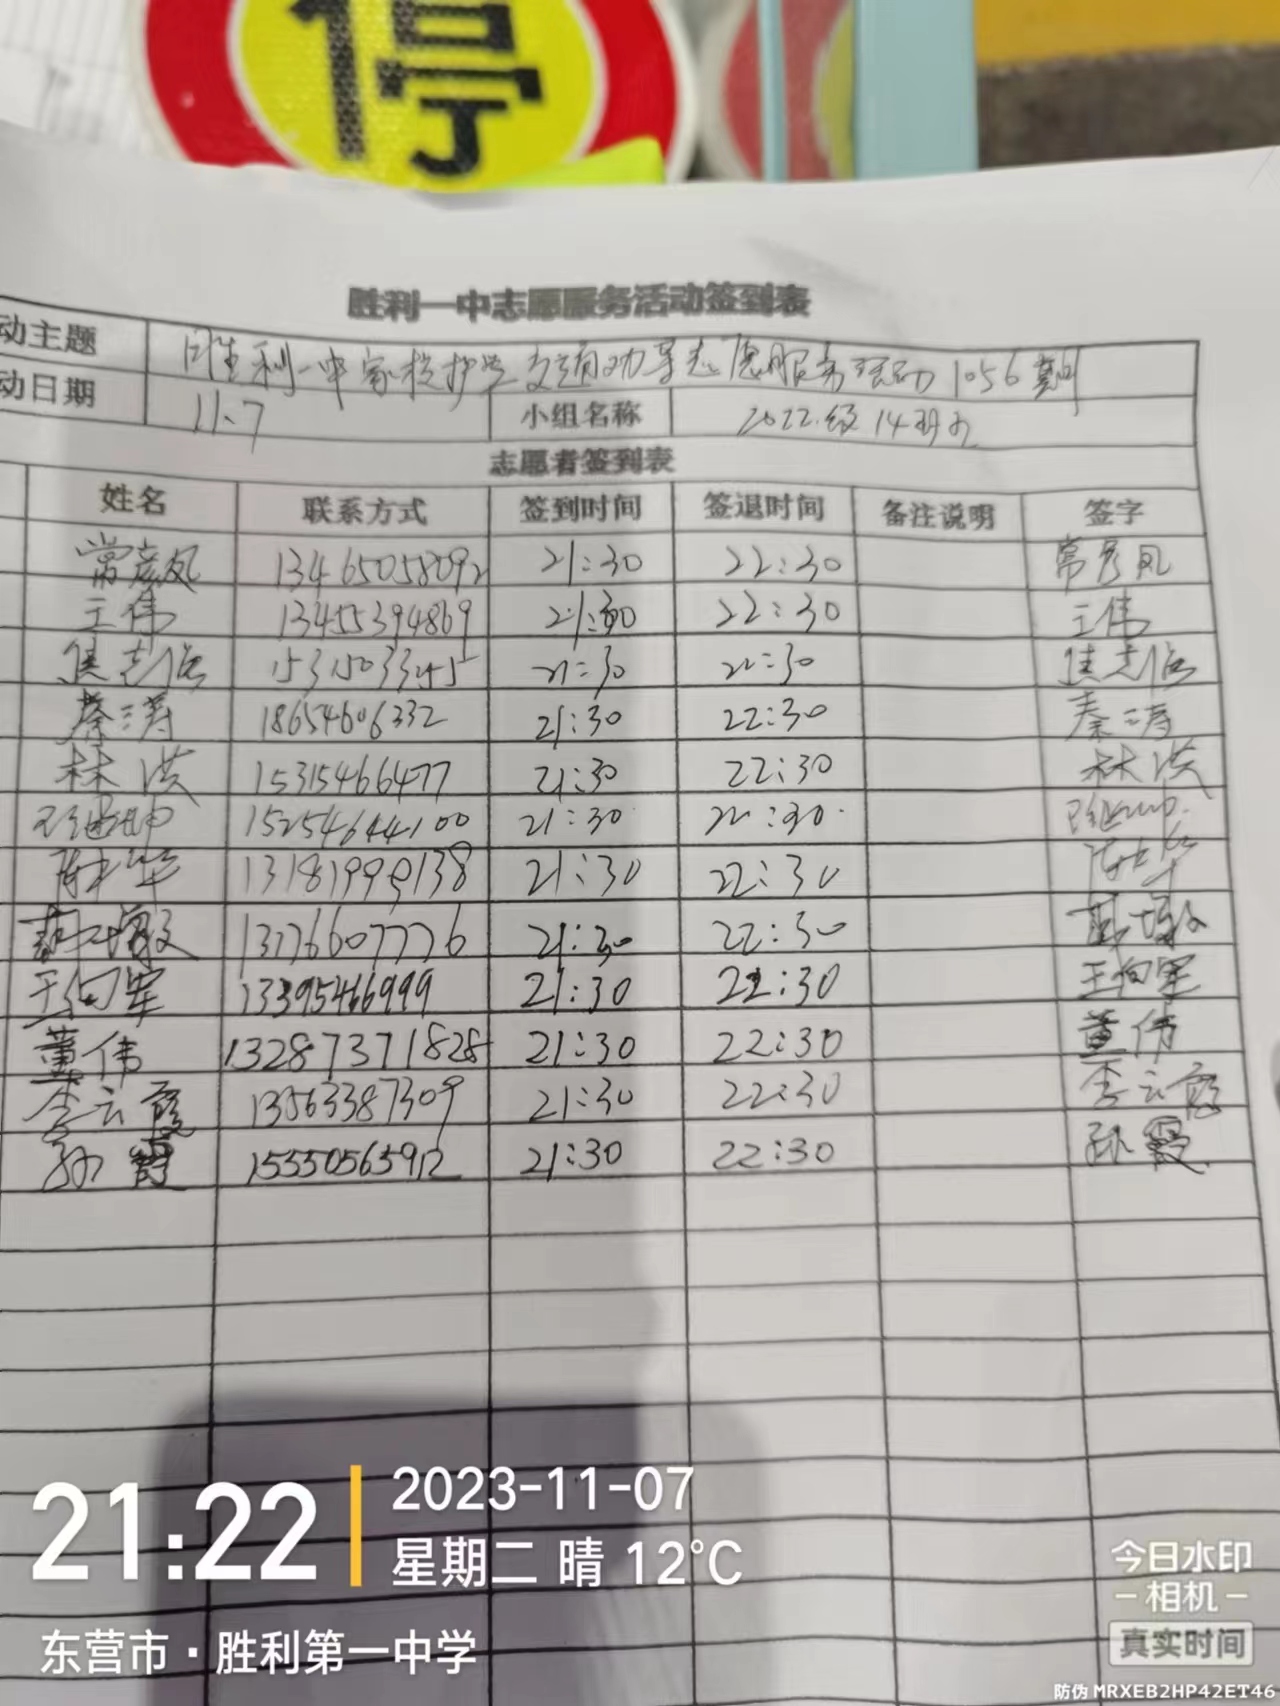 停
胜利一中志愿服务活动签到表
动主题 胜利一中家校护学交通劝导志愿服务活动1056期
动日期 11.7 小组名称 2022级14班
志愿者签到表
姓名 联系方式 签到时间 签退时间 备注说明 签字
常彦凤 13465058092 21:30 22:30 常彦凤
王伟 13455394869 21:30 22:30 王伟
15315033245 21:30 22:30
秦涛 18654606332 21:30 22:30 秦涛
林洪 15315466477 21:30 22:30 林洪
15254644100 21:30 22:30
13181999138 21:30 22:30
13276607776 21:30 22:30
王向军 13395466999 21:30 22:30 王向军
董伟 13287371828 21:30 22:30 董伟
李云霞 13563387309 21:30 22:30 李云霞
孙霞 15550565912 21:30 22:30 孙霞
21:22
2023-11-07
星期二 晴 12°C
东营市·胜利第一中学
今日水印
-相机-
真实时间
防伪 MRXEB2HP42ET46